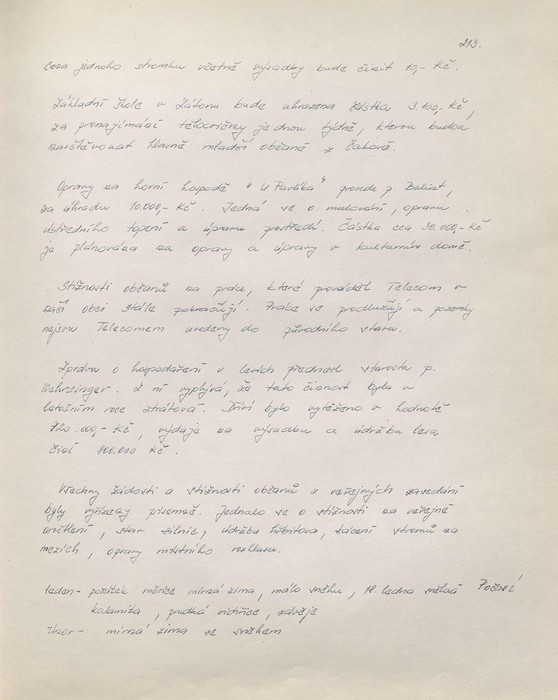 213.
Cena jednoho stromku včetně výsadby bude činit 10,- Kč.
Základní škole v Zátoru bude uhrazena částka 3.100,- Kč,
za pronajímání tělocvičny jednou týdně, kterou budou
navštěvovat hlavně mladší občané z Čakové.
Opravy na horní hospodě "U Pavlíka" provede p.
za úhradu 10.000,- Kč. Jedná se o malování, opravu
ústředního topení a úpravu prostředí. Částka cca 30.000,- Kč
je plánována na opravy a úpravy v kulturním domě.
Stížnosti občanů na práce, které prováděl Telecom v
naší obci stále pokračují. Práce se prodlužují a pozemky
nejsou Telecomem uvedeny do původního stavu.
Zprávu o hospodaření v lesích přednesl starosta p.
Z ní vyplývá, že tato činnost byla v
letošním roce ztrátová. Dříví bylo vytěženo v hodnotě
720.000,- Kč, výdaje na výsadbu a údržbu lesa
činí 800.000 Kč.
Všechny žádosti a stížnosti občanů z veřejných zasedání
byly vyřízeny písemně. Jednalo se o stížnosti na veřejné
osvětlení, stav silnic, údržbu hřbitova, kácení stromů na
mezích, opravy místního rozhlasu.
leden - počátek měsíce mírná zima, málo sněhu, 18. ledna Počasí
kalamita, prudká vichřice,
únor - mírná zima se sněhem